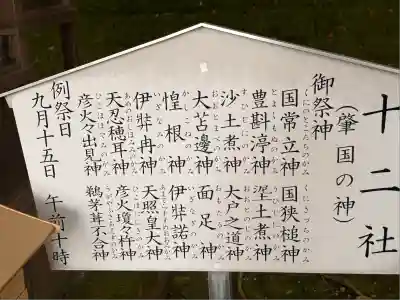 十二社
(肇国の神)
御祭神
国常立神 国狭槌神
豊斟渟神 埿土煮神
沙土煮神 大戸之道神
大苫邊神 面足神
惶根神 伊弉諾神
伊弉冉神 天照皇大神
天忍穂耳神 彦火瓊々杵神
彦火々出見神 鵜茅葺不合神
例祭日
九月十五日 午前十時